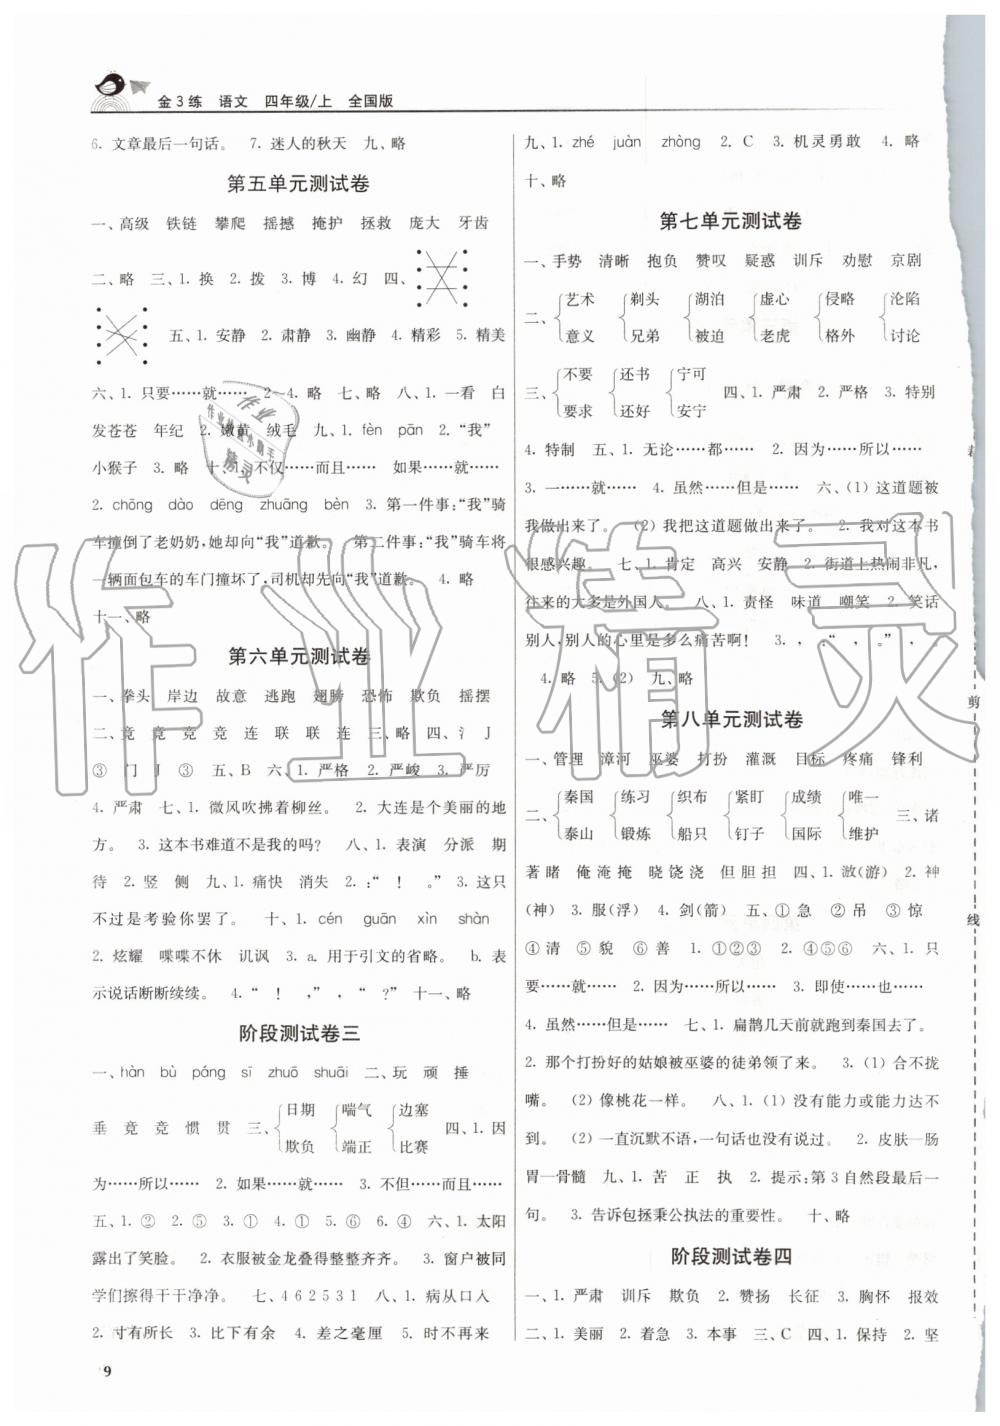 金3练 语文 四年级/上 全国版
6. 文章最后一句话。 7. 迷人的秋天 九、略
第五单元测试卷
一、高级 铁链 攀爬 摇撼 掩护 拯救 庞大 牙齿
二、略 三、1. 换 2. 拨 3. 博 4. 幻 四、
五、1. 安静 2. 肃静 3. 幽静 4. 精彩 5. 精美
六、1. 只要……就…… 2~4. 略 七、略 八、1. 一看 白
发苍苍 年纪 2. 嫩黄 绒毛 九、1. fèn pān 2. “我”
小猴子 3. 略 十、1. 不仅……而且…… 如果……就……
2. chōng dào dēng zhuāng bèn 3. 第一件事:“我”骑
车撞倒了老奶奶,她却向“我”道歉。 第二件事:“我”骑车将
一辆面包车的车门撞坏了,司机却先向“我”道歉。 4. 略
十一、略
第六单元测试卷
一、拳头 岸边 故意 逃跑 翅膀 恐怖 欺负 摇摆
二、竟 竞 竞 竟 连 联 联 连 三、略 四、氵 亅
③ 门 丿 ③ 五、B 六、1. 严格 2. 严峻 3. 严厉
4. 严肃 七、1. 微风吹拂着柳丝。 2. 大连是个美丽的地
方。 3. 这本书难道不是我的吗? 八、1. 表演 分派 期
待 2. 竖 侧 九、1. 痛快 消失 2. :“ ! 。” 3. 这只
不过是考验你罢了。 十、1. cén guān xìn shàn
2. 炫耀 喋喋不休 讥讽 3. a. 用于引文的省略。 b. 表
示说话断断续续。 4. “ ! ,” , “ ?” 十一、略
阶段测试卷三
一、hàn bù páng sī zhuō shuāi 二、玩 顽 捶
垂 竟 竞 惯 贯 三、{日期 欺负 {喘气 端正 {边塞 比赛 四、1. 因
为……所以…… 2. 如果……就…… 3. 不但……而且……
五、1. ② 2. ⑤ 3. ① 4. ① 5. ⑥ 6. ④ 六、1. 太阳
露出了笑脸。 2. 衣服被金龙叠得整整齐齐。 3. 窗户被同
学们擦得干干净净。 七、4 6 2 5 3 1 八、1. 病从口入
2. 寸有所长 3. 比下有余 4. 差之毫厘 5. 时不再来
9
九、1. zhé juàn zhòng 2. C 3. 机灵勇敢 4. 略
十、略
第七单元测试卷
一、手势 清晰 抱负 赞叹 疑惑 训斥 劝慰 京剧
二、{艺术 意义 {剃头 兄弟 {湖泊 被迫 {虚心 老虎 {侵略 格外 {沦陷 讨论
三、{不要 要求 {还书 还好 {宁可 安宁 四、1. 严肃 2. 严格 3. 特别
4. 特制 五、1. 无论……都…… 2. 因为……所以……
3. 一……就…… 4. 虽然……但是…… 六、(1) 这道题被
我做出来了。 (2) 我把这道题做出来了。 2. 我对这本书
很感兴趣。 七、1. 肯定 高兴 安静 2. 街道上热闹非凡,
往来的大多是外国人。 八、1. 责怪 味道 嘲笑 2. 笑话
别人,别人的心里是多么痛苦啊! 3. , :“ , 。” , 。
4. 略 5. (2) 九、略
第八单元测试卷
一、管理 漳河 巫婆 打扮 灌溉 目标 疼痛 锋利
二、{秦国 泰山 {练习 锻炼 {织布 船只 {紧盯 钉子 {成绩 国际 {唯一 维护 三、诸
著 睹 俺 淹 掩 晓 饶 浇 但 胆 担 四、1. 漖(游) 2. 神
(神) 3. 服(浮) 4. 剑(箭) 五、① 急 ② 吊 ③ 惊
④ 清 ⑤ 貌 ⑥ 善 1. ①②③ 2. ④⑤⑥ 六、1. 只
要……就…… 2. 因为……所以…… 3. 即使……也……
4. 虽然……但是…… 七、1. 扁鹊几天前就跑到秦国去了。
2. 那个打扮好的姑娘被巫婆的徒弟领了来。 3. (1) 合不拢
嘴。 (2) 像桃花一样。 八、1. (1) 没有能力或能力达不
到。 (2) 一直沉默不语,一句话也没有说过。 2. 皮肤—肠
胃—骨髓 九、1. 苦 正 执 2. 提示:第3自然段最后一
句。 3. 告诉包拯秉公执法的重要性。 十、略
阶段测试卷四
一、1. 严肃 训斥 欺负 2. 赞扬 长征 3. 胸怀 报效
二、1. 美丽 2. 着急 3. 本事 三、C 四、1. 保持 2. 坚
剪
线
作业精灵